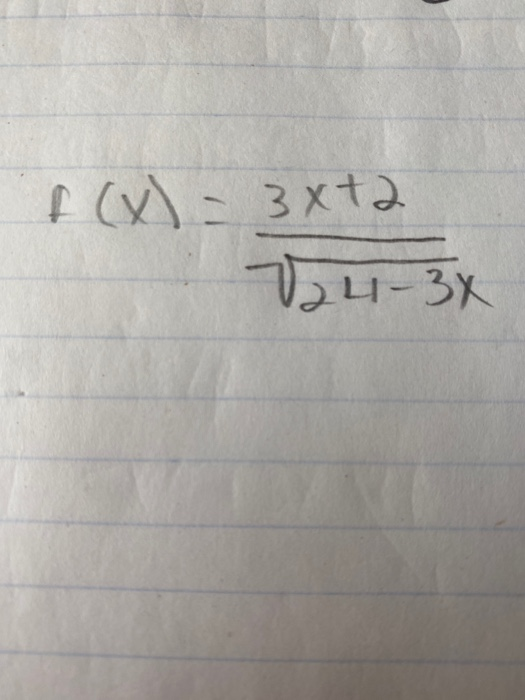 f(x) = 3x+2
√24-3x